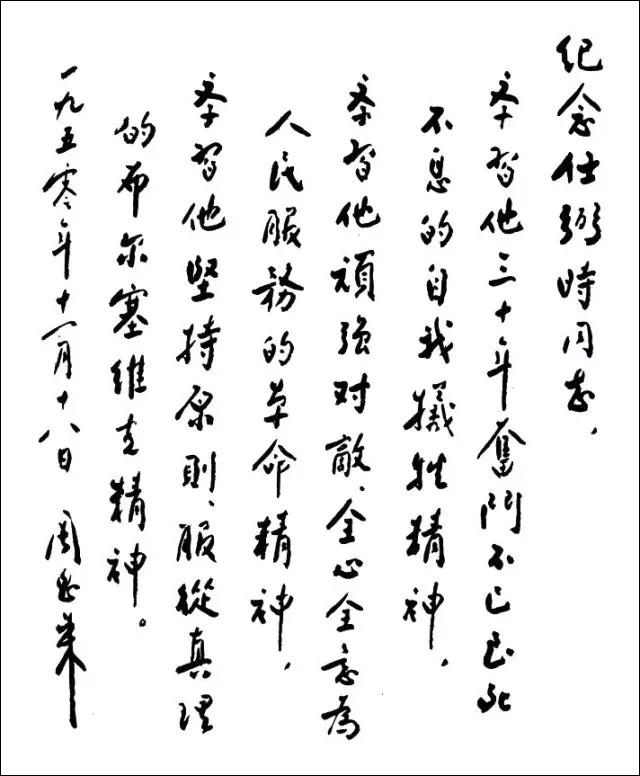 纪念任弼時同志，
学習他三十年奮鬥不已至死
不息的自我犧牲精神，
学習他頑强对敵、全心全意為
人民服務的革命精神，
学習他坚持原則、服從真理
的布尔塞維克精神。
一九五零年十一月十八日 周恩来